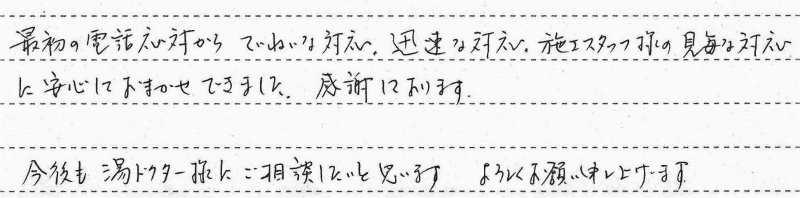 最初の電話応対から ていねいな対応、迅速な対応、施工スタッフ様の見事な対応
に安心しておまかせできました。感謝しております。
今後も湯ドクター様にご相談したいと思います よろしくお願い申し上げます